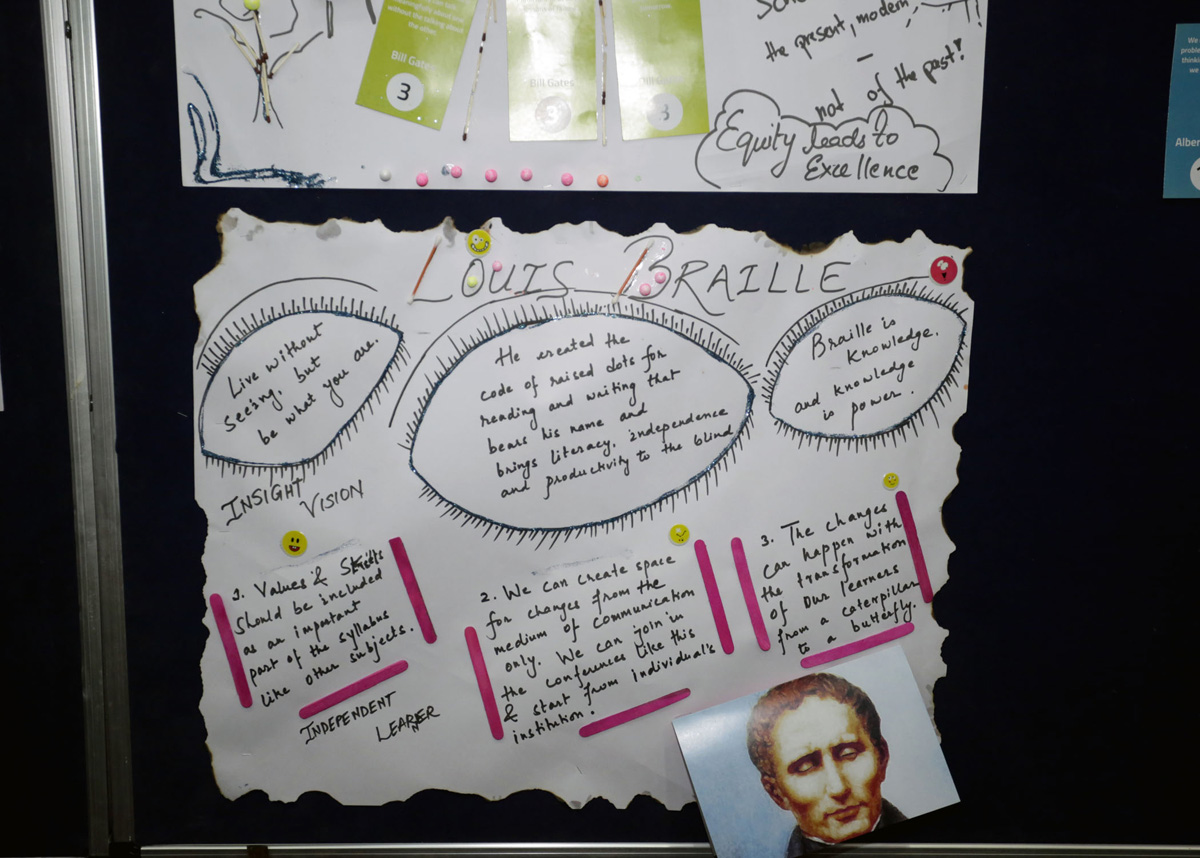 without the talking about
the other.
Bill Gates
3
Bill Gates
3
3
the present, modern
—
not of the past!
Equity leads to
Excellence
We
Alber
LOUIS BRAILLE
Live without
seeing, but
be what you are.
He created the
code of raised dots for
reading and writing that
bears his name and
brings literacy, independence
and productivity to the blind
Braille is
Knowledge.
and knowledge
is power.
INSIGHT
VISION
1. Values & Skills
should be included
as an important
part of the syllabus
like other subjects.
INDEPENDENT
LEARNER
2. We can create space
for changes from the
medium of communication
only. We can join in
the conferences like this
& start from individual's
institution.
3. The changes
can happen with
the transformation
of our learners
from a caterpillar
to a butterfly.